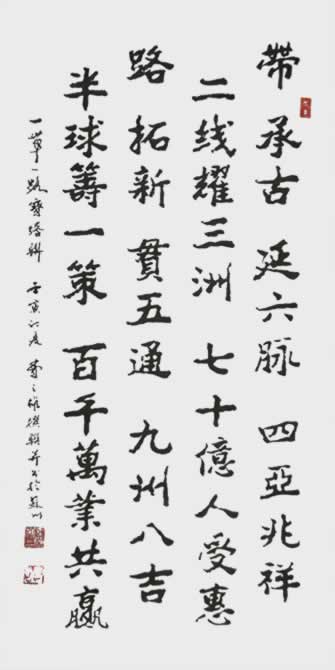 帶承古 延六脉 四亞兆祥
二线耀三洲 七十億人受惠
路拓新 貫五通 九州八吉
半球籌一策 百千萬業共贏
一带一路寶塔聯 壬寅 撰聯并書於蘇州